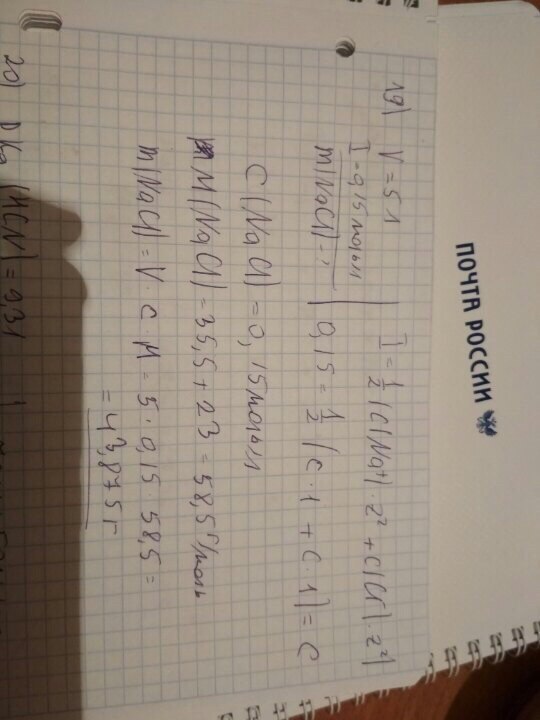 19)
V = 5 л
I = 0,15 моль/л
m(NaCl) = ?
I = 1/2 (C(Na+) · z² + C(Cl-) · z²)
0,15 = 1/2 (C · 1 + C · 1) = C
C(NaCl) = 0,15 моль/л
M(NaCl) = 35,5 + 23 = 58,5 г/моль
m(NaCl) = V · C · M = 5 · 0,15 · 58,5 =
= 43,875 г
20)
(HCN) = 9,31
ПОЧТА РОССИИ